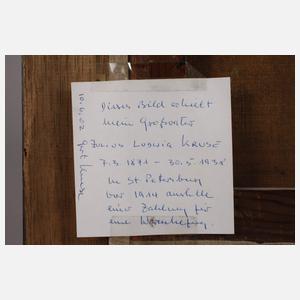 Dieses Bild erhielt
mein Großvater
Julius Ludwig Kruse
7.3.1871 - 30.5.1938
in St. Petersburg
vor 1914 anstelle
einer Zahlung für
eine
10.6.02 Gert Kruse